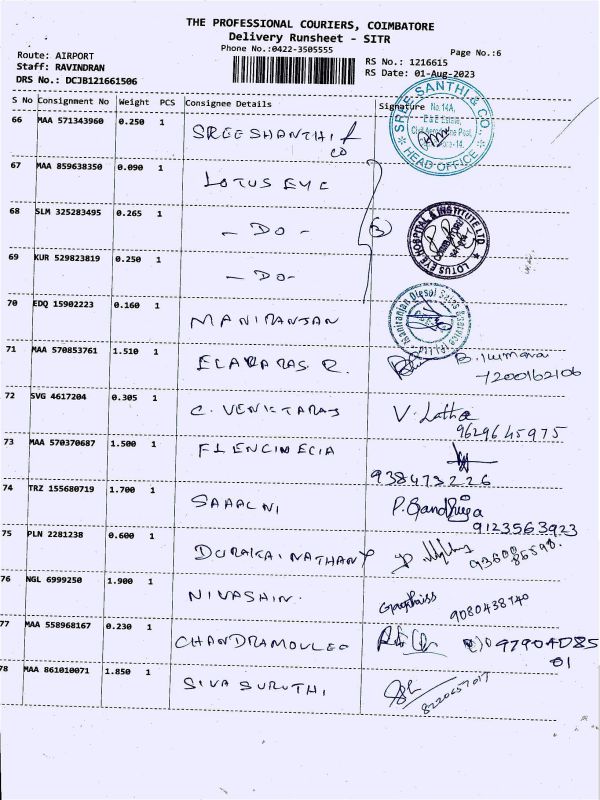 THE PROFESSIONAL COURIERS, COIMBATORE
Delivery Runsheet - SITR
Phone No.:0422-3505555
Page No.:6
Route: AIRPORT
Staff: RAVINDRAN
DRS No.: DCJB121661506
RS No.: 1216615
RS Date: 01-Aug-2023
S No Consignment No Weight PCS Consignee Details Signature
66 MAA 571343960 0.250 1 SREE SHANTHI & CO
SREE SANTHI & CO. No.14A, HEAD OFFICE
67 MAA 859638350 0.090 1 LOTUS EYE
68 SLM 325283495 0.265 1 - DO - 3
LOTUS EYE HOSPITAL & INSTITUTE LTD
69 KUR 529823819 0.250 1 - DO -
70 EDQ 15902223 0.160 1 MANIRANJAN
Maniranjan Diesel Sales & Service (P) Ltd
71 MAA 570853761 1.510 1 R.
7200162106
72 SVG 4617204 0.305 1 C. V. Latha
9629645975
73 MAA 570370687 1.500 1
938473226
74 TRZ 155680719 1.700 1 P.
9123563923
75 PLN 2281238 0.600 1
76 NGL 6999250 1.900 1 NIVASHIN.
9080438740
77 MAA 558968167 0.230 1
97904085
01
78 MAA 861010071 1.850 1 SIVA SURUTHI